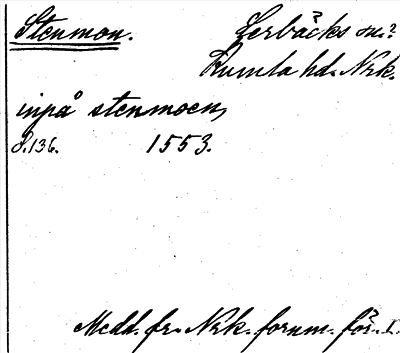 Stenmon. Lerbäcks sn?
Kumla hd. Nrk.
inpå stenmoen,
s. 136. 1553.
Medd. fr. Nrk. fornm. för. I.